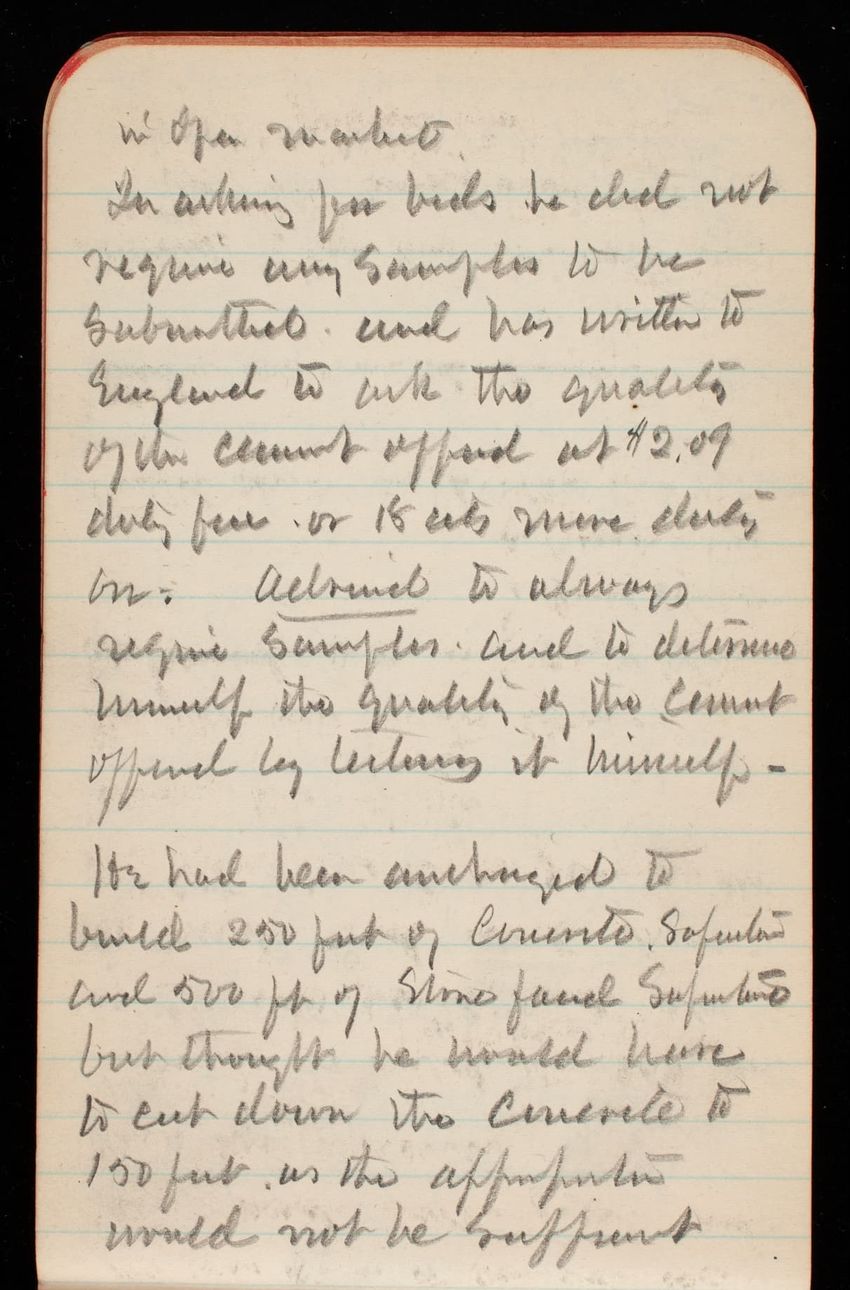 in Open market.
In asking for bids he did not
require any Samples to be
Submitted. and has written to
England to ask the quality
of the Cement offered at $2.09
duty free. or 18 cts more duty
on. Advised to always
require Samples. and to determine
himself the quality of the Cement
offered by testing it himself -
He had been to
build 250 feet of Concrete.
and 500 ft of Stone faced
but thought he would have
to cut down the Concrete to
150 feet. as the appropriation
would not be Sufficient